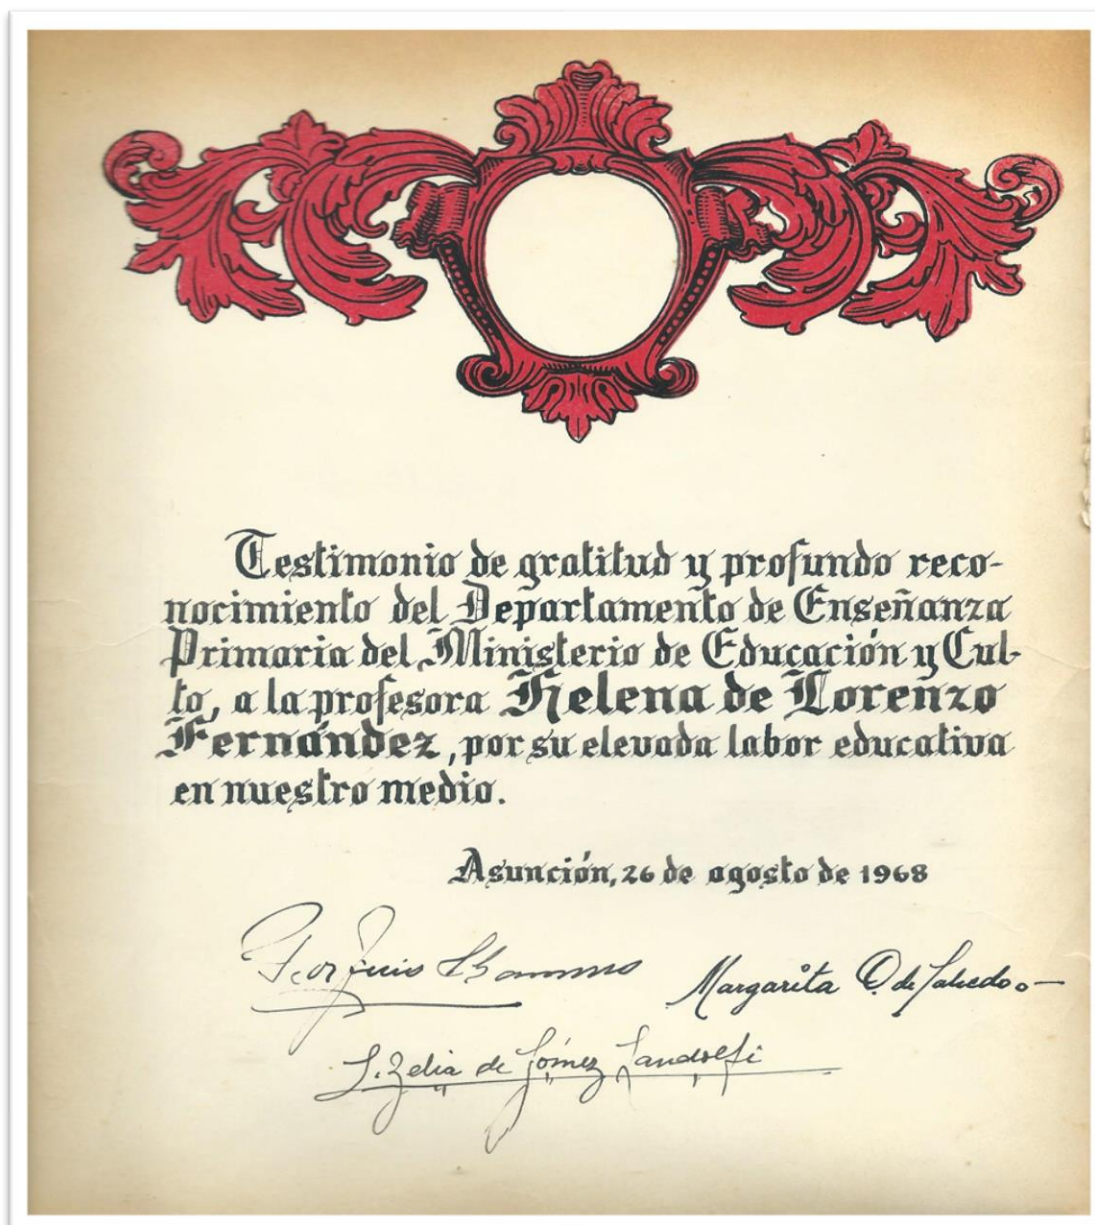 Testimonio de gratitud y profundo reco-
nocimiento del Departamento de Enseñanza
Primaria del Ministerio de Educación y Cul-
to, a la profesora Helena de Lorenzo
Fernández, por su elevada labor educativa
en nuestro medio.
Asunción, 26 de agosto de 1968
Margarita O. de Salcedo
L. Zelia de Gómez Sandolfi